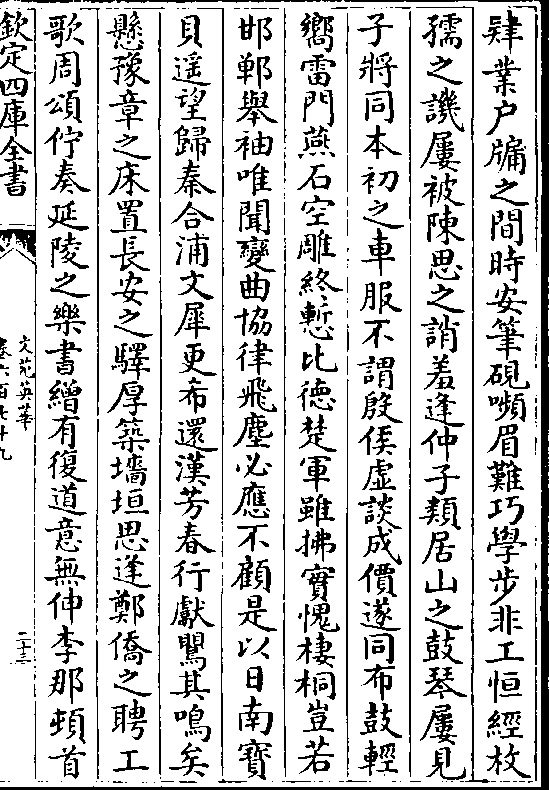 肄業户牖之間時安筆硯嚬眉難巧學步非工恒經枚
孺之譏屢被陳思之誚羞逢仲子類居山之鼓琴屢見
子將同本初之車服不謂殷侯虛談成價遂同布鼓輕
嚮雷門燕石空雕終慙比德楚軍雖拂實愧棲桐豈若
邯鄲舉袖唯聞變曲協律飛塵必應不顧是以日南寶
貝遥望歸秦合浦文犀更希還漢芳春行獻鸎其鳴矣
懸豫章之床置長安之驛厚築墻垣思逢鄭僑之聘工
歌周頌佇奏延陵之樂書繒有復道意無伸李那頓首
欽定四庫全書
文苑英華
卷六百七十九
二十三